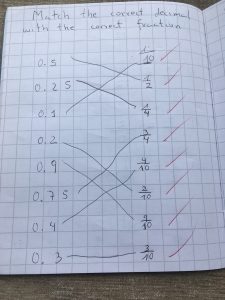 Match the correct decimal
with the correct fraction
0.5 1/10
0.25 1/2
0.1 1/4
0.2 3/4
0.9 4/10
0.75 2/10
0.4 9/10
0.3 3/10